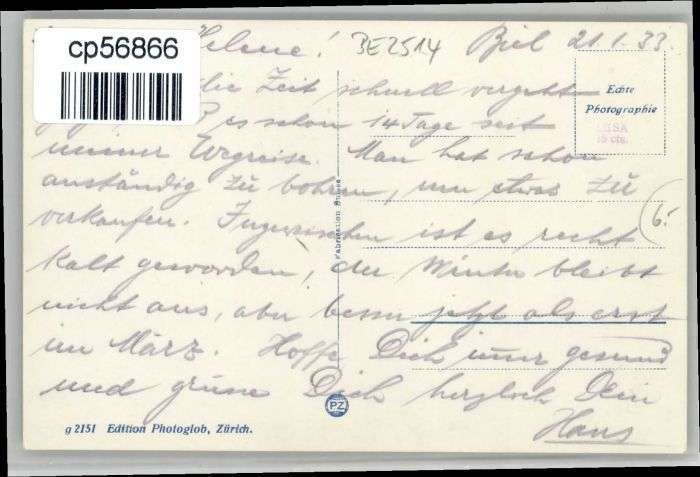 cp56866
Helene! BE2514 Biel 21.1.33.
die Zeit schnell vergeht
es schon 14 Tage seit
unserer Wegreise. Man hat schon
anständig zu bohren, um etwas zu
verkaufen. Inzwischen ist es recht
kalt geworden, der Winter bleibt
nicht aus, aber besser jetzt als erst
im März. Hoffe Dich immer gesund
und grüsse Dich herzlich Dein
Hans
Echte
Photographie
6.-
Fabrication Suisse
PZ
g 2151 Edition Photoglob, Zürich.